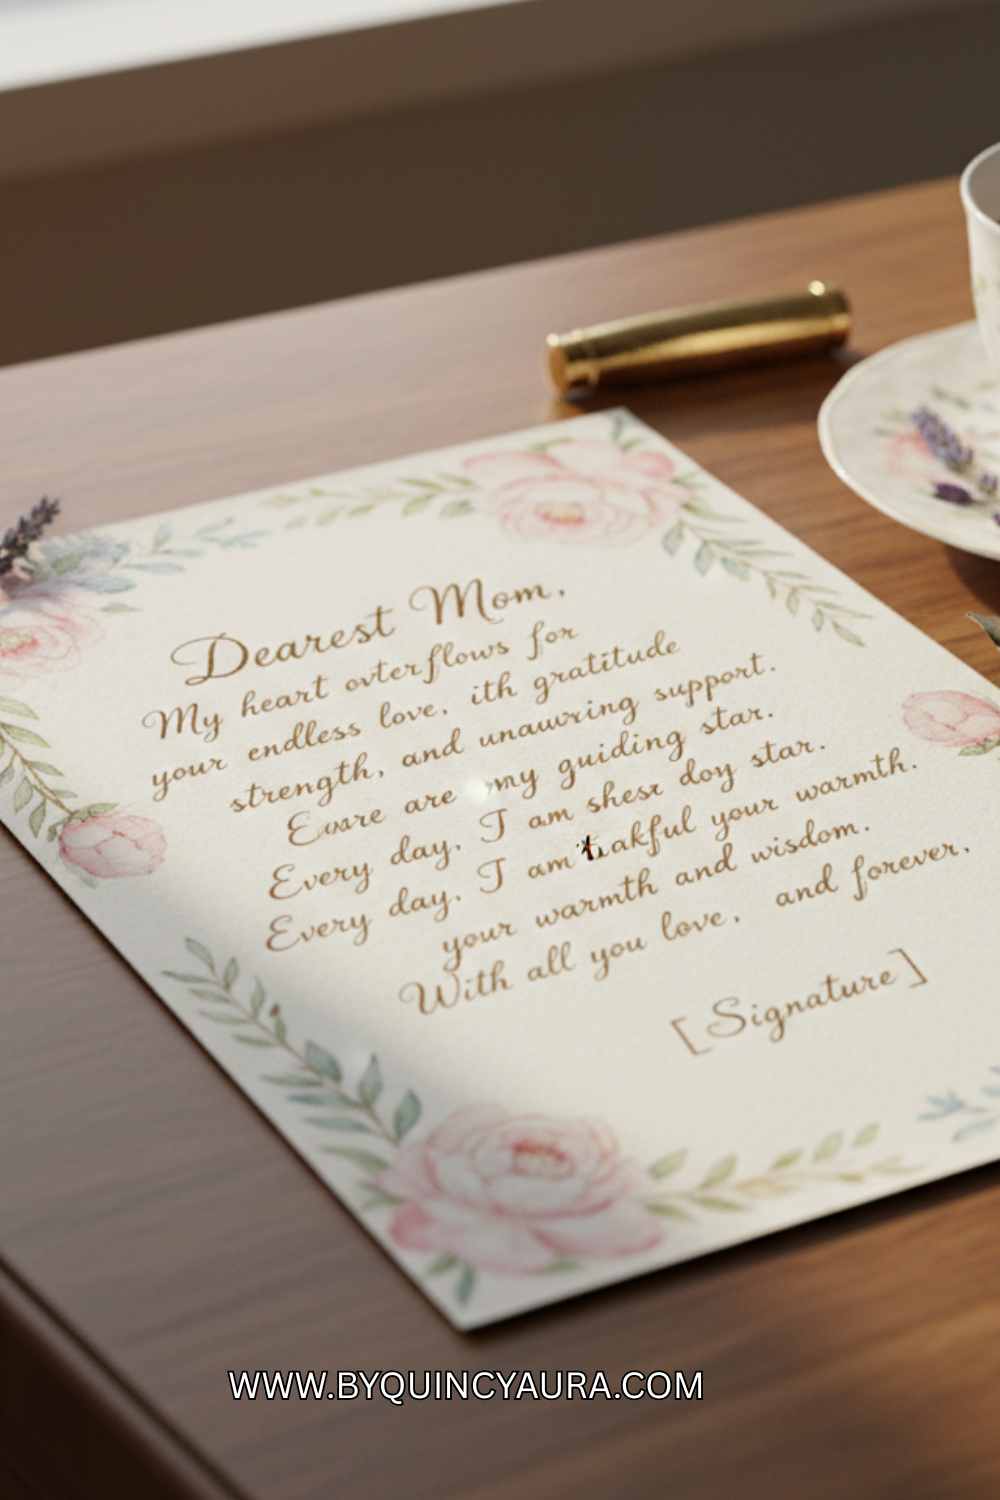 Dearest Mom,
My heart overflows for
your endless love, ith gratitude
strength, and unauvring support.
are my guiding star.
Every day. I am shese doy star.
Every day. I am your warmth.
your warmth and wisdom.
With all you love, and forever.
[Signature]
WWW.BYQUINCYAURA.COM